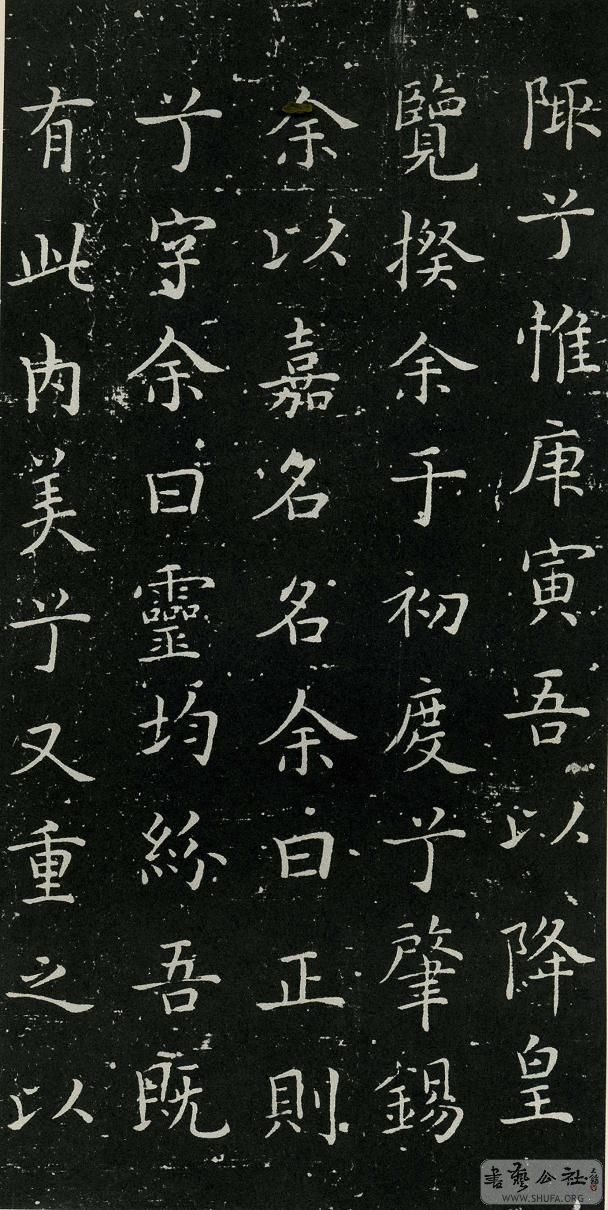 陬兮惟庚寅吾以降皇
覽揆余于初度兮肇錫
余以嘉名名余曰正則
兮字余曰靈均紛吾既
有此内美兮又重之以
書藝公社
WWW.SHUFA.ORG